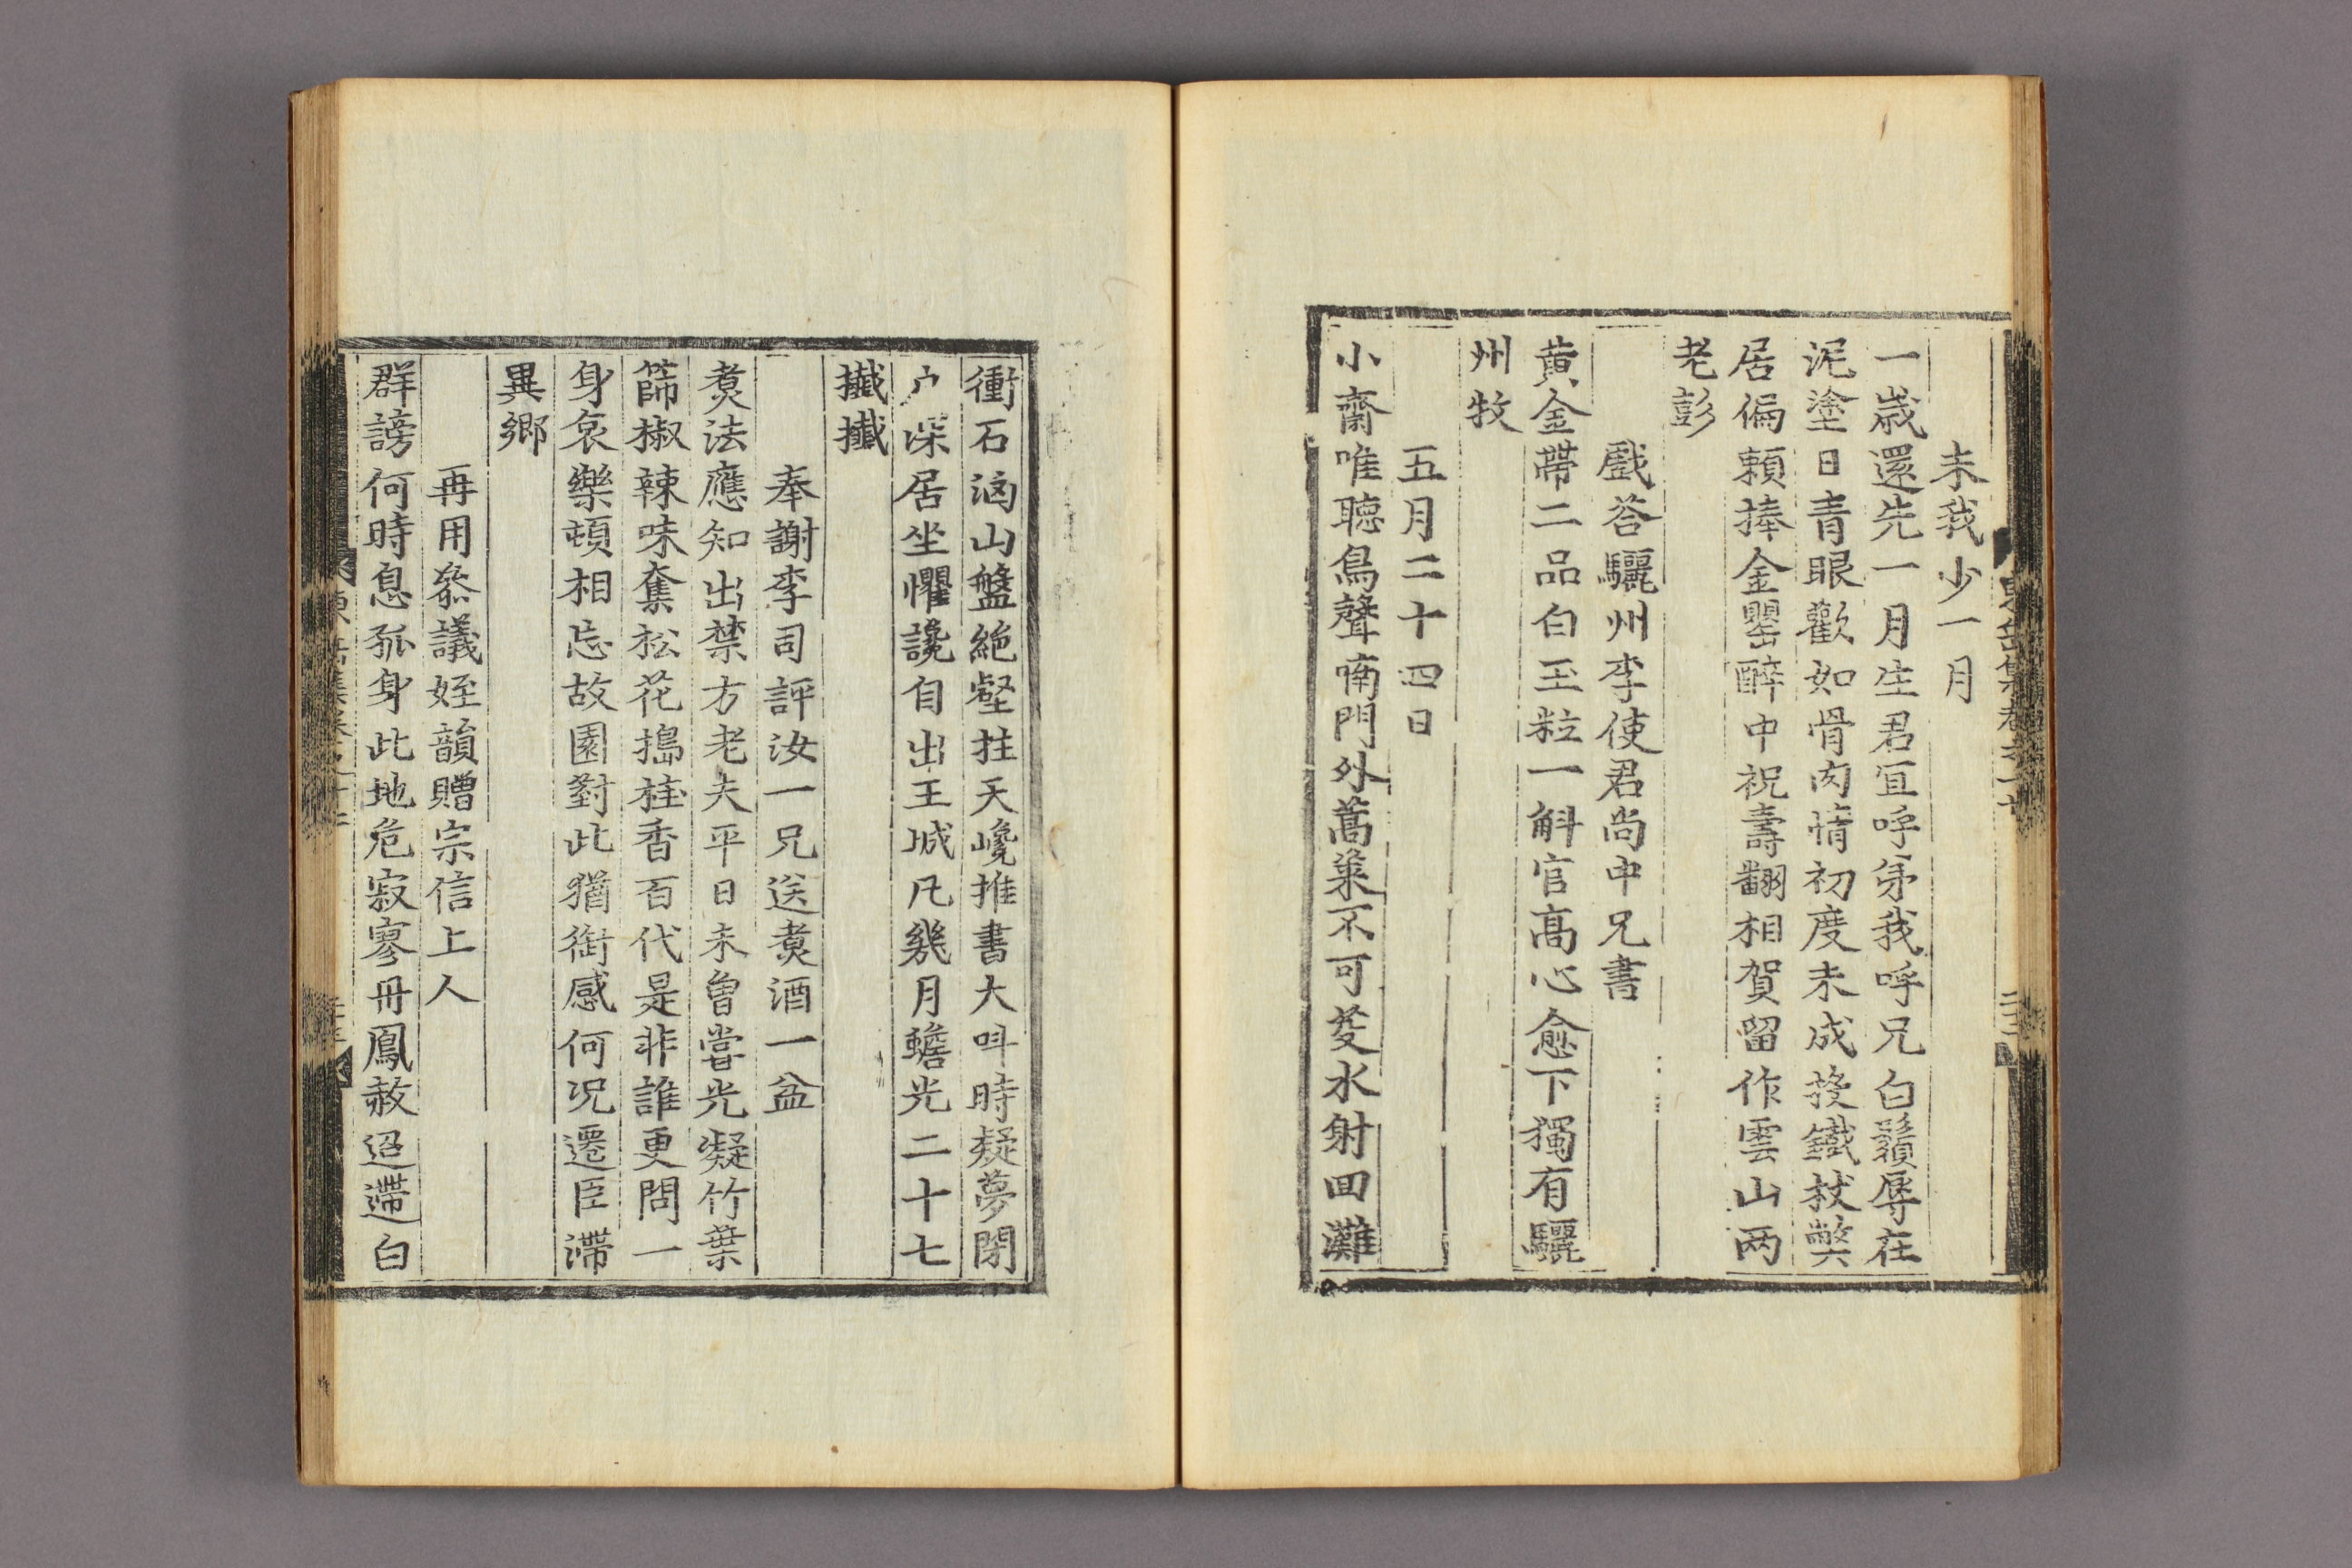 未我少一月
一歲還先一月生君宜呼弟我呼兄白鬚辱在
泥塗日青眼歡如骨肉情初度未成投鐵杖獘
居偏賴捧金罌醉中祝壽翻相賀留作雲山两
老彭
戲荅驪州李使君尚中兄書
黃金帶二品白玉粒一斛官高心愈下獨有驪
州牧
五月二十四日
小齋唯聽鳥聲喃門外蒿萊不可芟水射回灘
衝石滴山盤絶壑拄天巉推書大呌時疑夢閉
户深居坐懼讒自出王城凡幾月蟾光二十七
攕攕
奉謝李司評汝一兄送煑酒一盆
煑法應知出禁方老夫平日未曾嘗光凝竹葉
篩椒辣味奪松花搗桂香百代是非誰更問一
身哀樂頓相忘故園對此猶銜感何况遷臣滯
異鄉
再用叅議姪韻贈宗信上人
群謗何時息孤身此地危寂寥丹鳳赦迢遰白